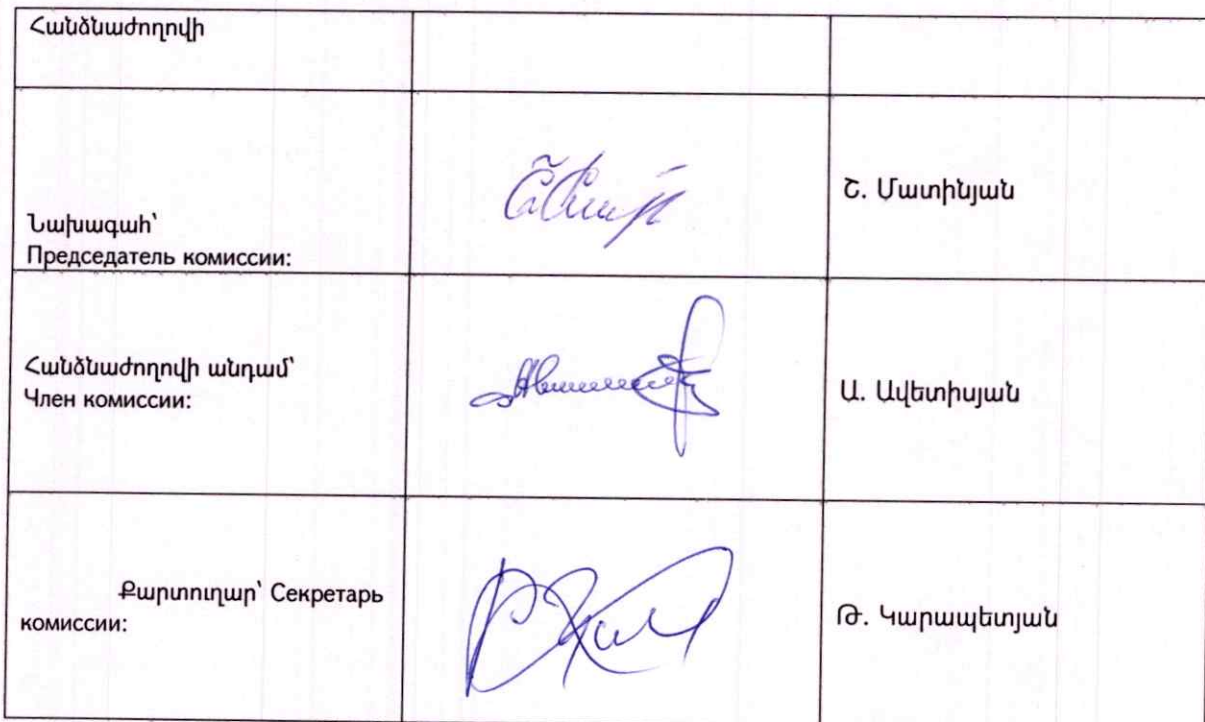 Հանձնաժողովի
Նախագահ՝
Председатель комиссии:
Շ. Մատինյան
Հանձնաժողովի անդամ՝
Член комиссии:
Ա. Ավետիսյան
Քարտուղար՝ Секретарь
комиссии:
Թ. Կարապետյան